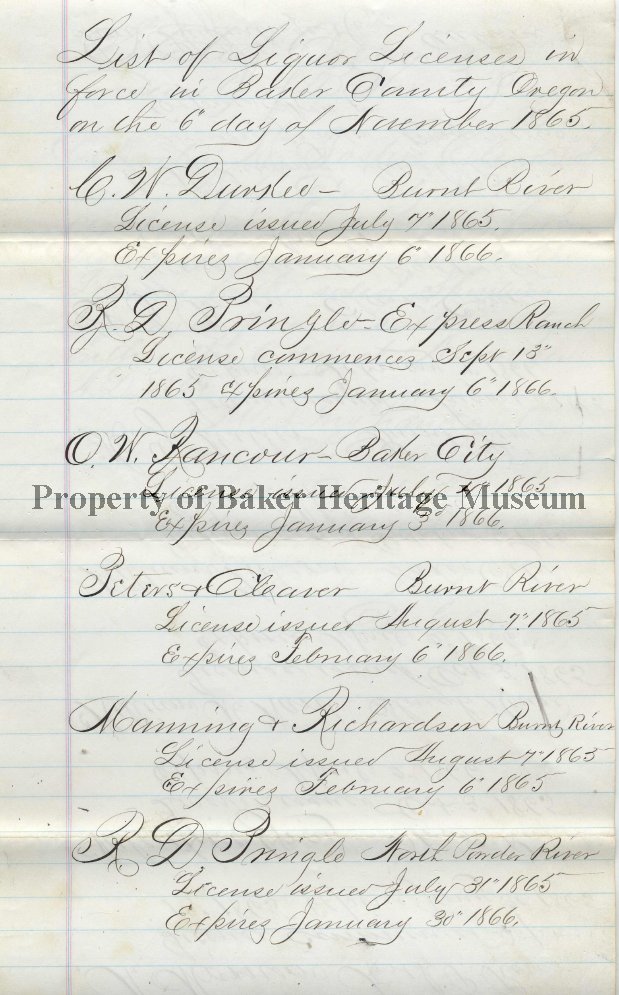 List of Liquor Licenses in
force in Baker County Oregon
on the 6" day of November 1865.
C. W. Durkee - Burnt River
License issued July 7" 1865.
Expires January 6" 1866.
R. D. Pringle - Express Ranch
License commences Sept 13"
1865 expires January 6" 1866.
O. W. Rancour - Baker City
License issued July 1865
Property of Baker Heritage Museum
Expires January 3" 1866.
Peters & Cleaver Burnt River
License issued August 7" 1865
Expires February 6" 1866.
Manning & Richardson Burnt River
License issued August 7" 1865
Expires February 6" 1865
R. D Pringle North Powder River
License issued July 31" 1865
Expires January 30" 1866.